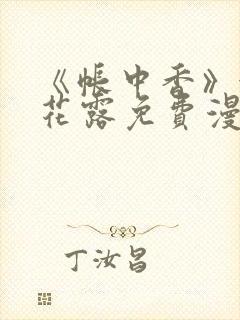 《帐中香》
花露免费漫
丁汝昌